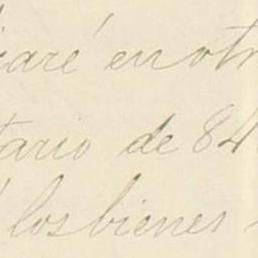 iaré en otr
tario de 84
los bienes